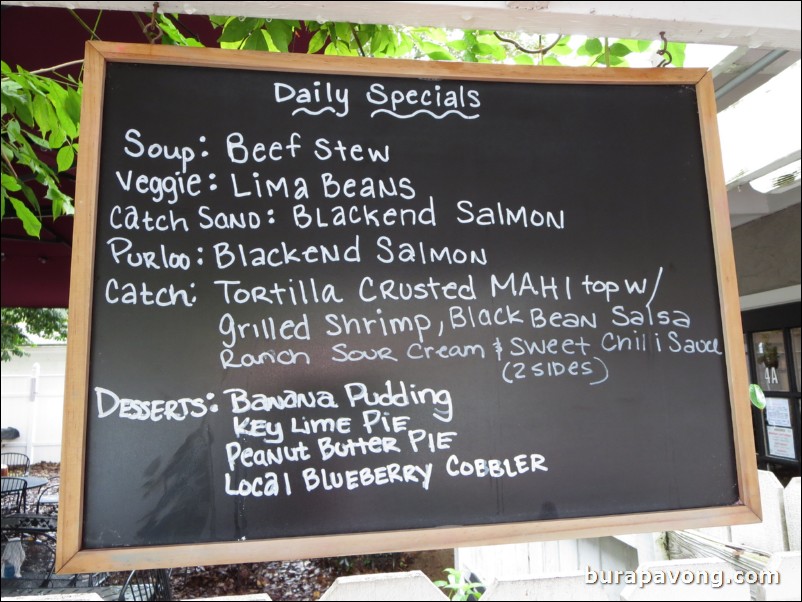 Daily Specials
Soup: Beef Stew
Veggie: Lima Beans
Catch Sand: Blackend Salmon
Purloo: Blackend Salmon
Catch: Tortilla Crusted MAHI top w/
grilled Shrimp, Black Bean Salsa
Ranch Sour Cream & Sweet Chili Sauce
(2 sides)
Desserts: Banana Pudding
Key Lime Pie
Peanut Butter Pie
Local Blueberry Cobbler
4A
burapavong.com